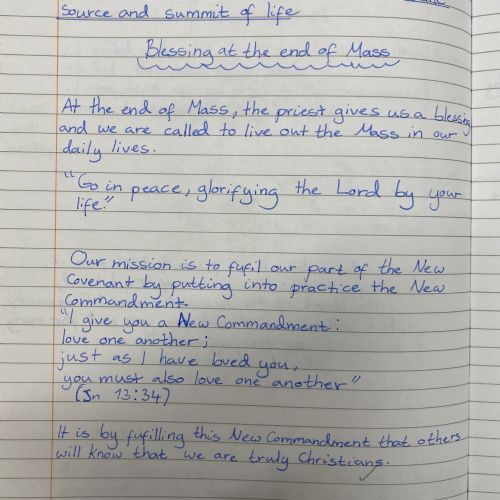 Source and summit of life
Blessing at the end of Mass
At the end of Mass, the priest gives us a blessing
and we are called to live out the Mass in our
daily lives.
"Go in peace, glorifying the Lord by your
life."
Our mission is to fufil our part of the New
Covenant by putting into practice the New
Commandment.
"I give you a New Commandment:
love one another;
just as I have loved you,
you must also love one another"
(Jn 13:34)
It is by fufilling this New Commandment that others
will know that we are truly Christians.